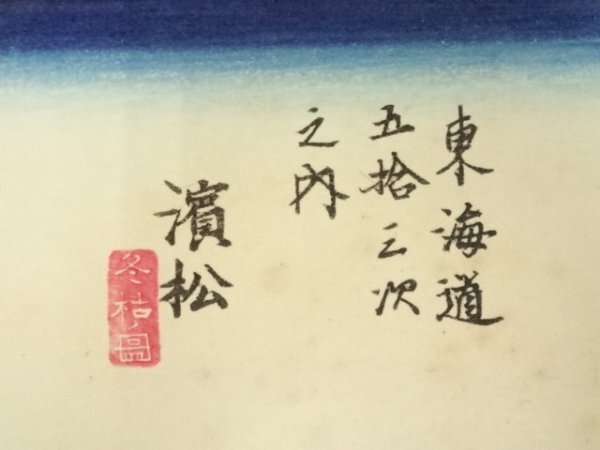 東海道
五拾三次
之内
濱松
冬枯圖